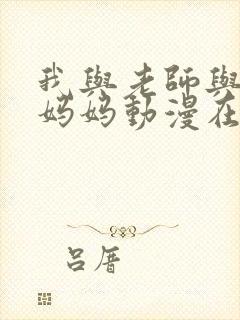 我與老師與
媽媽動漫在
呂厝